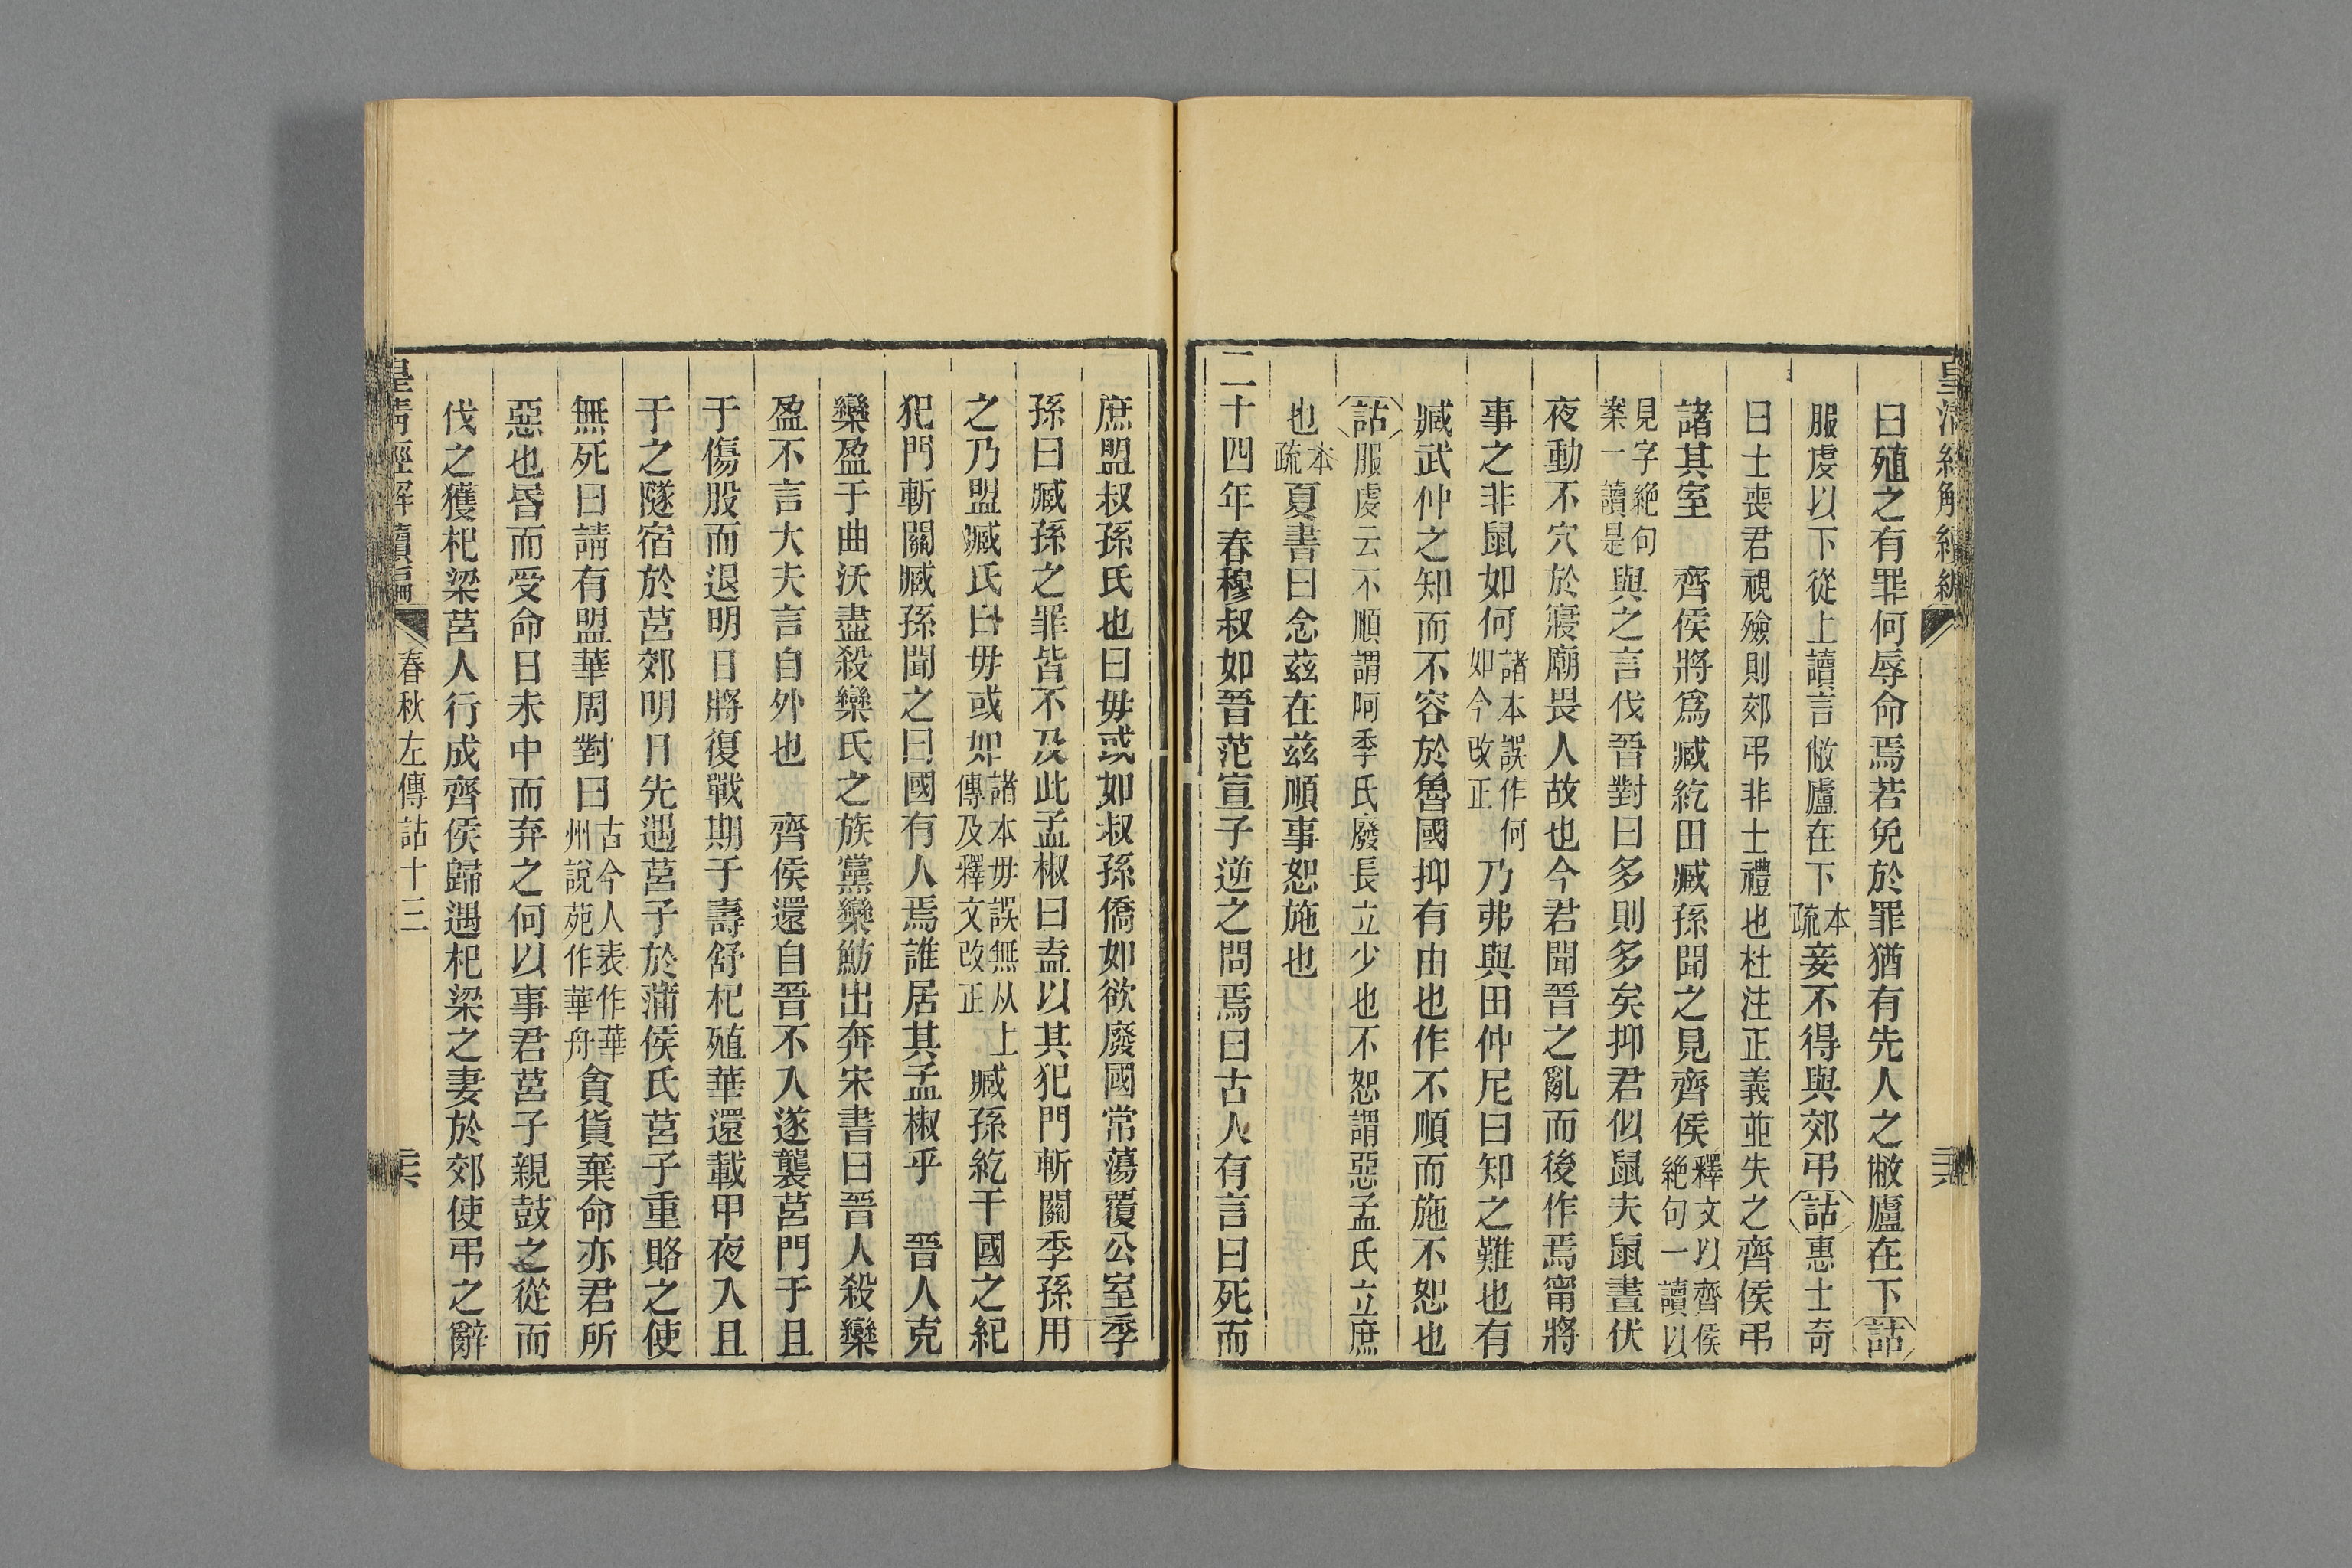 皇清經解續編
曰殖之有罪何辱命焉若免於罪猶有先人之敝廬在下詁
服虔以下從上讀言敝廬在下本疏妾不得與郊弔詁惠士奇
曰士喪君視殮則郊弔非士禮也杜注正義並失之齊侯弔
諸其室　齊侯將爲臧紇田臧孫聞之見齊侯釋文以齊侯絕句一讀以
見字絕句案一讀是與之言伐晉對曰多則多矣抑君似鼠夫鼠晝伏
夜動不穴於寢廟畏人故也今君聞晉之亂而後作焉甯將
事之非鼠如何諸本誤作何如今改正乃弗與田仲尼曰知之難也有
臧武仲之知而不容於魯國抑有由也作不順而施不恕也
詁服虔云不順謂阿季氏廢長立少也不恕謂惡孟氏立庶
也本疏夏書曰念茲在茲順事恕施也
二十四年春穆叔如晉范宣子逆之問焉曰古人有言曰死而
庶盟叔孫氏也曰毋或如叔孫僑如欲廢國常蕩覆公室季
孫曰臧孫之罪皆不及此孟椒曰盍以其犯門斬關季孫用
之乃盟臧氏曰毋或如諸本毋誤無从上傳及釋文改正臧孫紇干國之紀
犯門斬關臧孫聞之曰國有人焉誰居其孟椒乎　晉人克
欒盈于曲沃盡殺欒氏之族黨欒魴出奔宋書曰晉人殺欒
盈不言大夫言自外也　齊侯還自晉不入遂襲莒門于且
于傷股而退明日將復戰期于壽舒杞殖華還載甲夜入且
于之隧宿於莒郊明日先遇莒子於蒲侯氏莒子重賂之使
無死曰請有盟華周對曰古今人表作華州說苑作華舟貪貨棄命亦君所
惡也昏而受命日未中而弃之何以事君莒子親鼓之從而
伐之獲杞梁莒人行成齊侯歸遇杞梁之妻於郊使弔之辭
皇清經解續編　春秋左傳詁十三